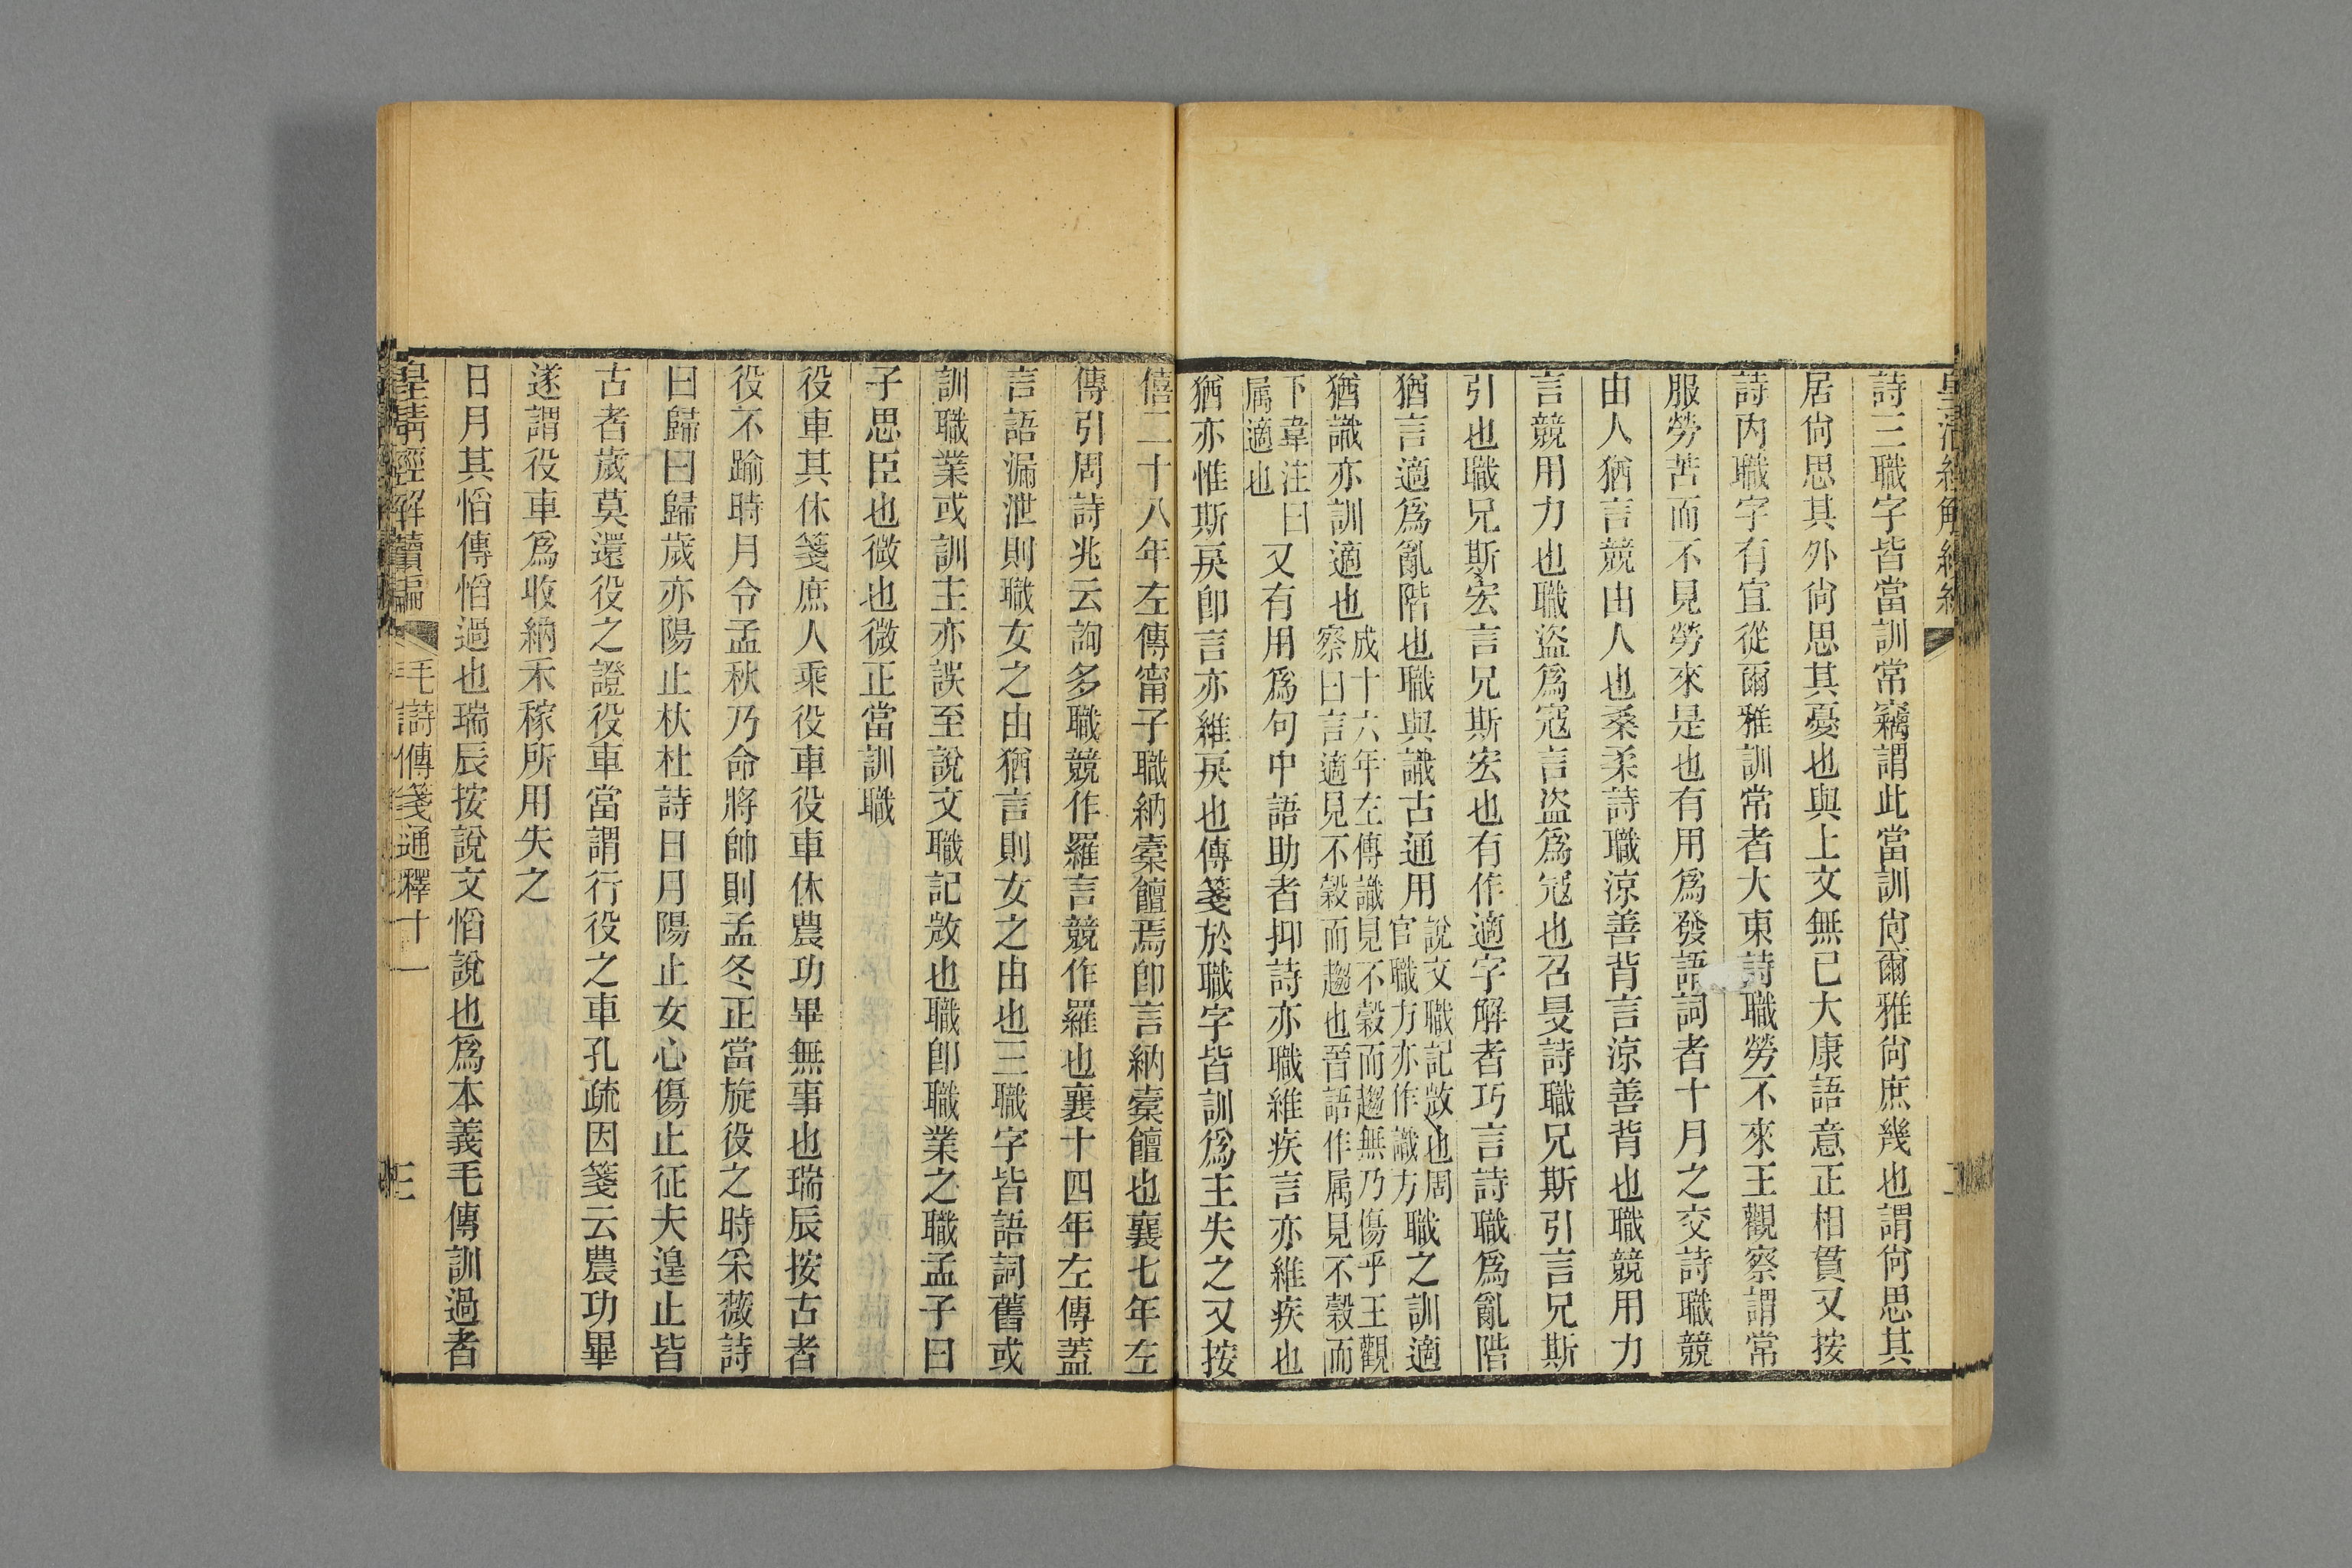 詩三職字皆當訓常竊謂此當訓尙爾雅尙庶幾也謂尙思其
居尙思其外尙思其憂也與上文無已大康語意正相貫又按
詩內職字有宜從爾雅訓常者大東詩職勞不來王觀察謂常
服勞苦而不見勞來是也有用爲發語詞者十月之交詩職競
由人猶言競由人也桑柔詩職涼善背言涼善背也職競用力
言競用力也職盜爲寇言盜爲寇也召旻詩職兄斯引言兄斯
引也職兄斯宏言兄斯宏也有作適字解者巧言詩職爲亂階
猶言適爲亂階也職與識古通用說文職記㣲也周官職方亦作識方職之訓適
猶識亦訓適也成十六年左傳識見不穀而趨無乃傷乎王觀察曰言適見不穀而趨也晉語作屬見不穀而
下韋注曰屬適也又有用爲句中語助者抑詩亦職維疾言亦維疾也
猶亦惟斯戾卽言亦維戾也傳箋於職字皆訓爲主失之又按
僖二十八年左傳甯子職納橐饘焉卽言納橐饘也襄七年左
傳引周詩兆云詢多職競作羅言競作羅也襄十四年左傳蓋
言語漏泄則職女之由猶言則女之由也三職字皆語詞舊或
訓職業或訓主亦誤至說文職記㣲也職卽職業之職孟子曰
子思臣也微也微正當訓職
役車其休箋庶人乘役車役車休農功畢無事也瑞辰按古者
役不踰時月令孟秋乃命將帥則孟冬正當旋役之時采薇詩
曰歸曰歸歲亦陽止杕杜詩日月陽止女心傷止征夫遑止皆
古者歲莫還役之證役車當謂行役之車孔疏因箋云農功畢
遂謂役車爲收納禾稼所用失之
日月其慆傳慆過也瑞辰按說文慆說也爲本義毛傳訓過者
皇淸經解續編 毛詩傳箋通釋十一 三